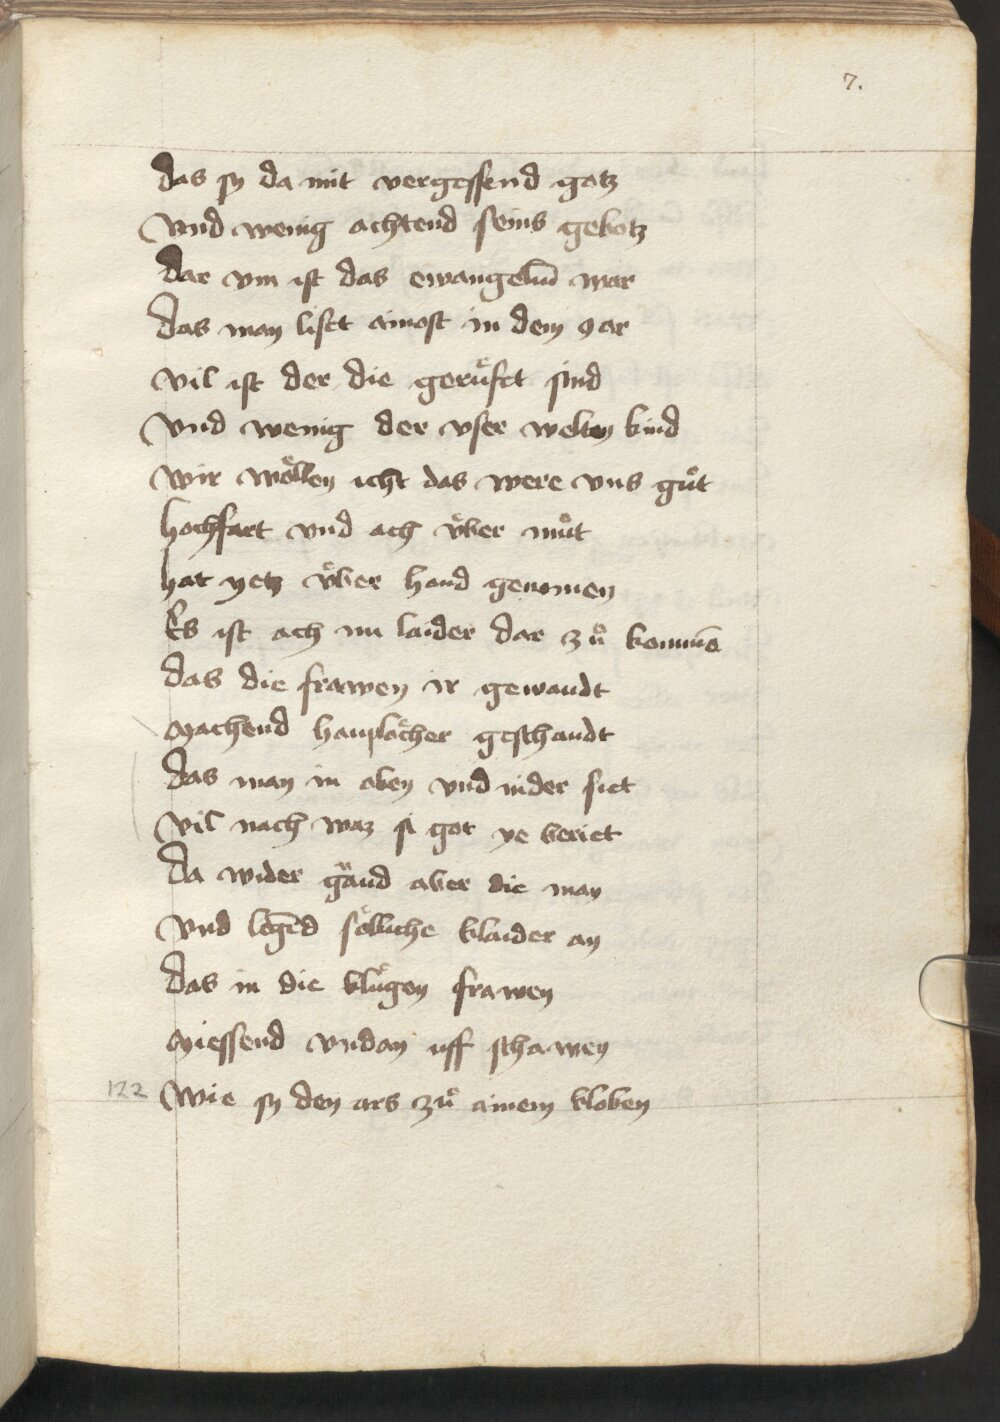 7.
das sy da mit vergessend gotz
Vnd wenig achtend seins gebotz
dar vm ist das ewangeliū war
das man liset ainost in dem Jar
vil ist der die gerůfet sind
Vnd wenig der vser welten kind
wir wöllen icht das were vns gůt
hochfart vnd ach v̈ber můt
hat yetz v̈ber hand genomen
Es ist ach nu laider dar zů kommē
das die frawen ir gewandt
Machend hauplöcher geschandt
das man in oben vnd nider siet
vil nach waz si got ye beriet
da wider gänd aber die man
Vnd legēd sölliche klaider an
das in die klůgen frawen
Miessend vndan uff schawen
122 Wie sy den ars zů ainem kloben